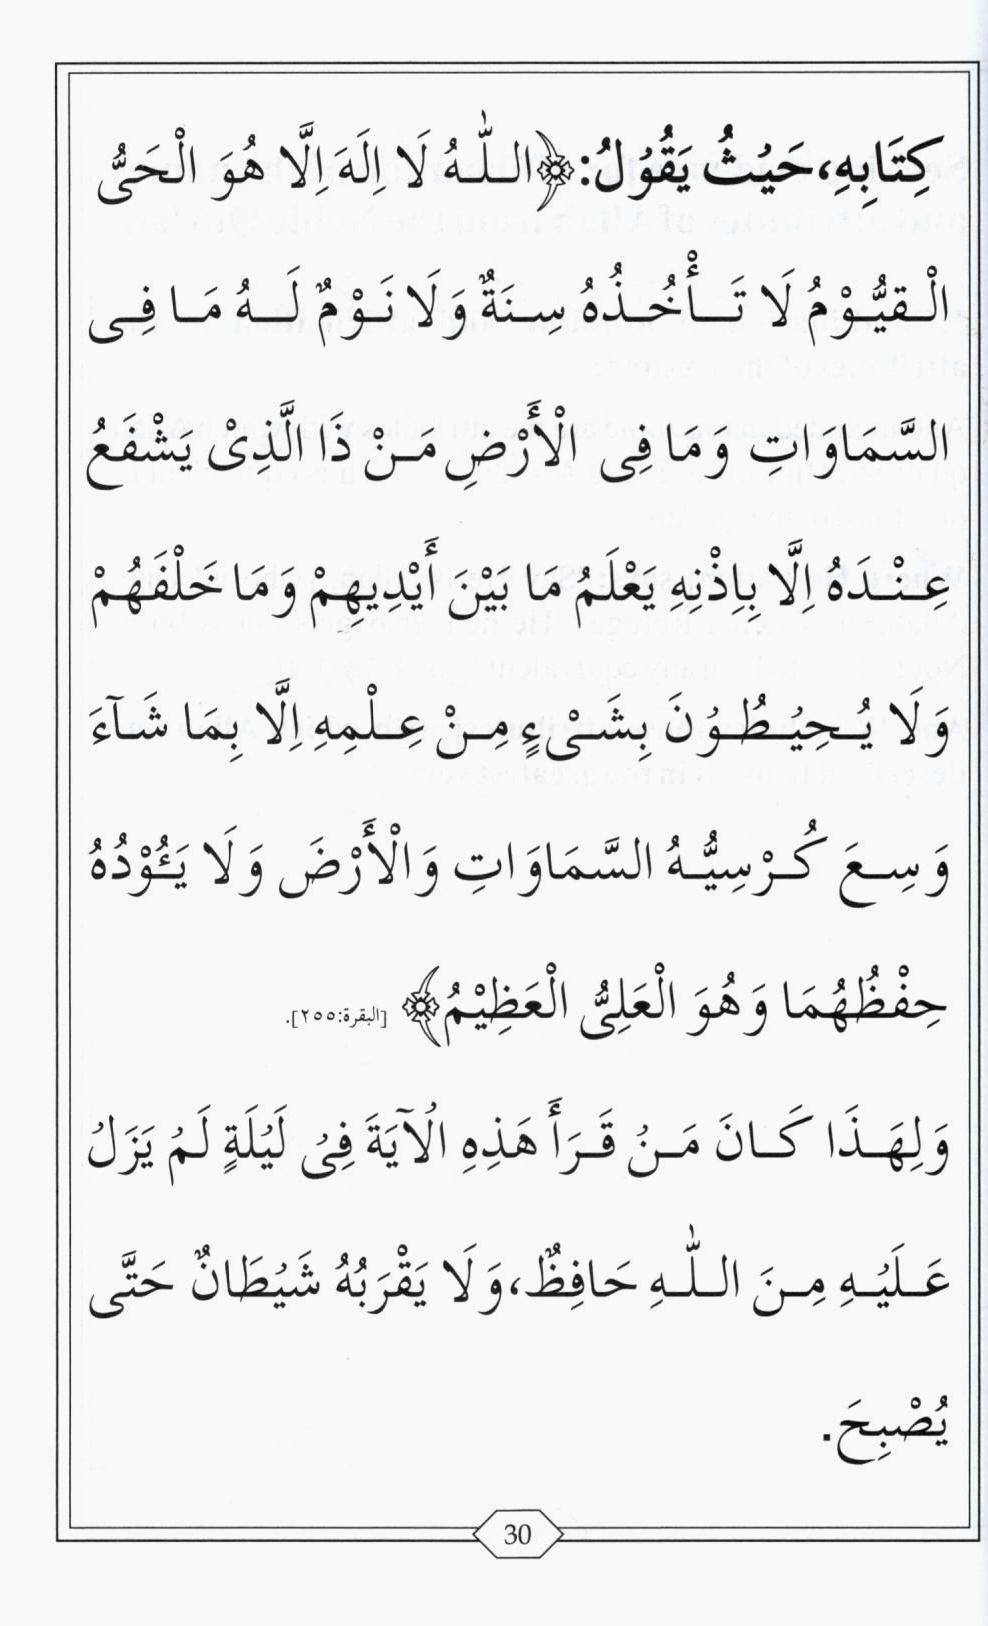 كِتَابِهِ، حَيْثُ يَقُوْلُ: ﴿اللّٰهُ لَا اِلَهَ اِلَّا هُوَ الْحَىُّ
الْقيُّوْمُ لَا تَأْخُذُهُ سِنَةٌ وَلَا نَوْمٌ لَهُ مَا فِى
السَّمٰوَاتِ وَمَا فِى الْأَرْضِ مَنْ ذَا الَّذِىْ يَشْفَعُ
عِنْدَهُ اِلَّا بِاِذْنِهِ يَعْلَمُ مَا بَيْنَ أَيْدِيهِمْ وَمَا خَلْفَهُمْ
وَلَا يُحِيْطُوْنَ بِشَىْءٍ مِنْ عِلْمِهِ اِلَّا بِمَا شَآءَ
وَسِعَ كُرْسِيُّهُ السَّمَاوَاتِ وَالْأَرْضَ وَلَا يَئُوْدُهُ
حِفْظُهُمَا وَهُوَ الْعَلِىُّ الْعَظِيْمُ﴾ [البقرة:٢٥٥].
وَلِهَذَا كَانَ مَنْ قَرَأَ هَذِهِ الْآيَةَ فِىْ لَيْلَةٍ لَمْ يَزَلْ
عَلَيْهِ مِنَ اللّٰهِ حَافِظٌ، وَلَا يَقْرَبُهُ شَيْطَانٌ حَتَّى
يُصْبِحَ.
30